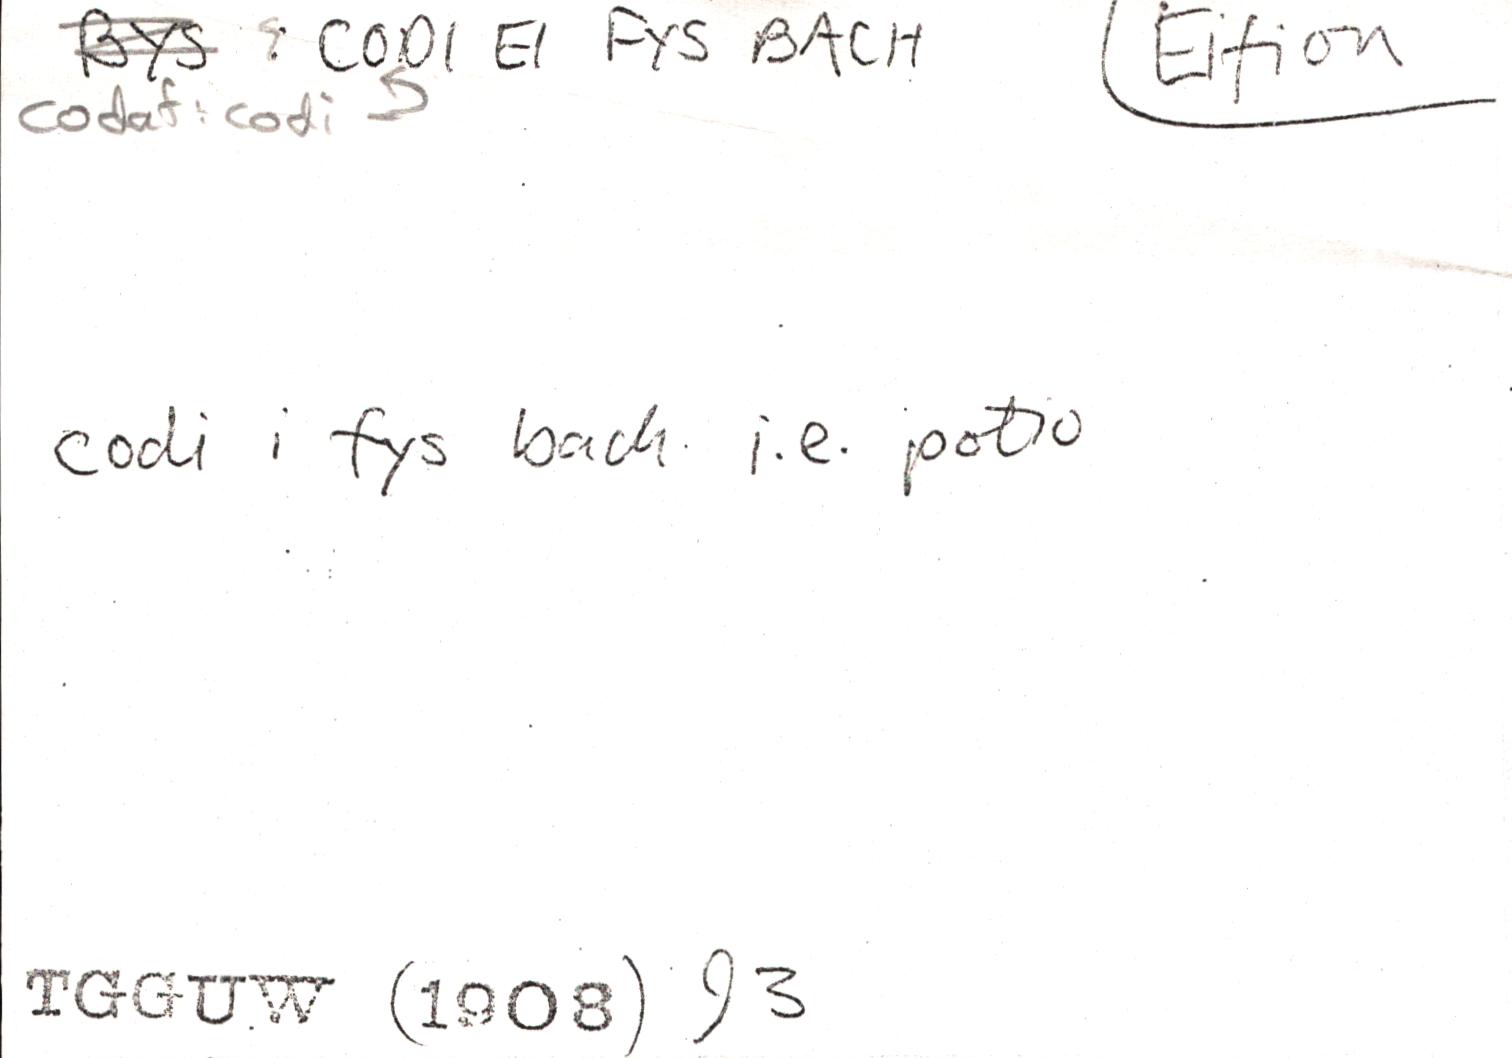 BYS : CODI EI FYS BACH
Eifion
codaf: codi
codi i fys bach. i.e. potio
TGGUW (1908) 93